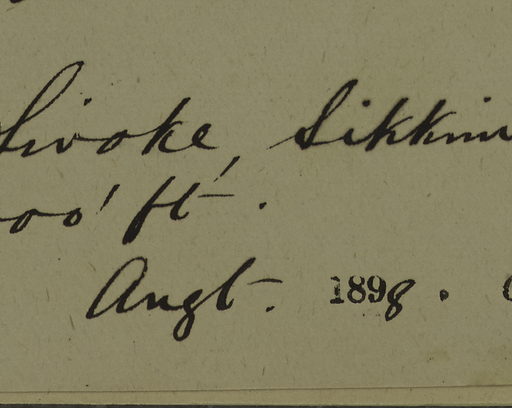 Sivoke, Sikkim
00' ft.
Augt. 1898.